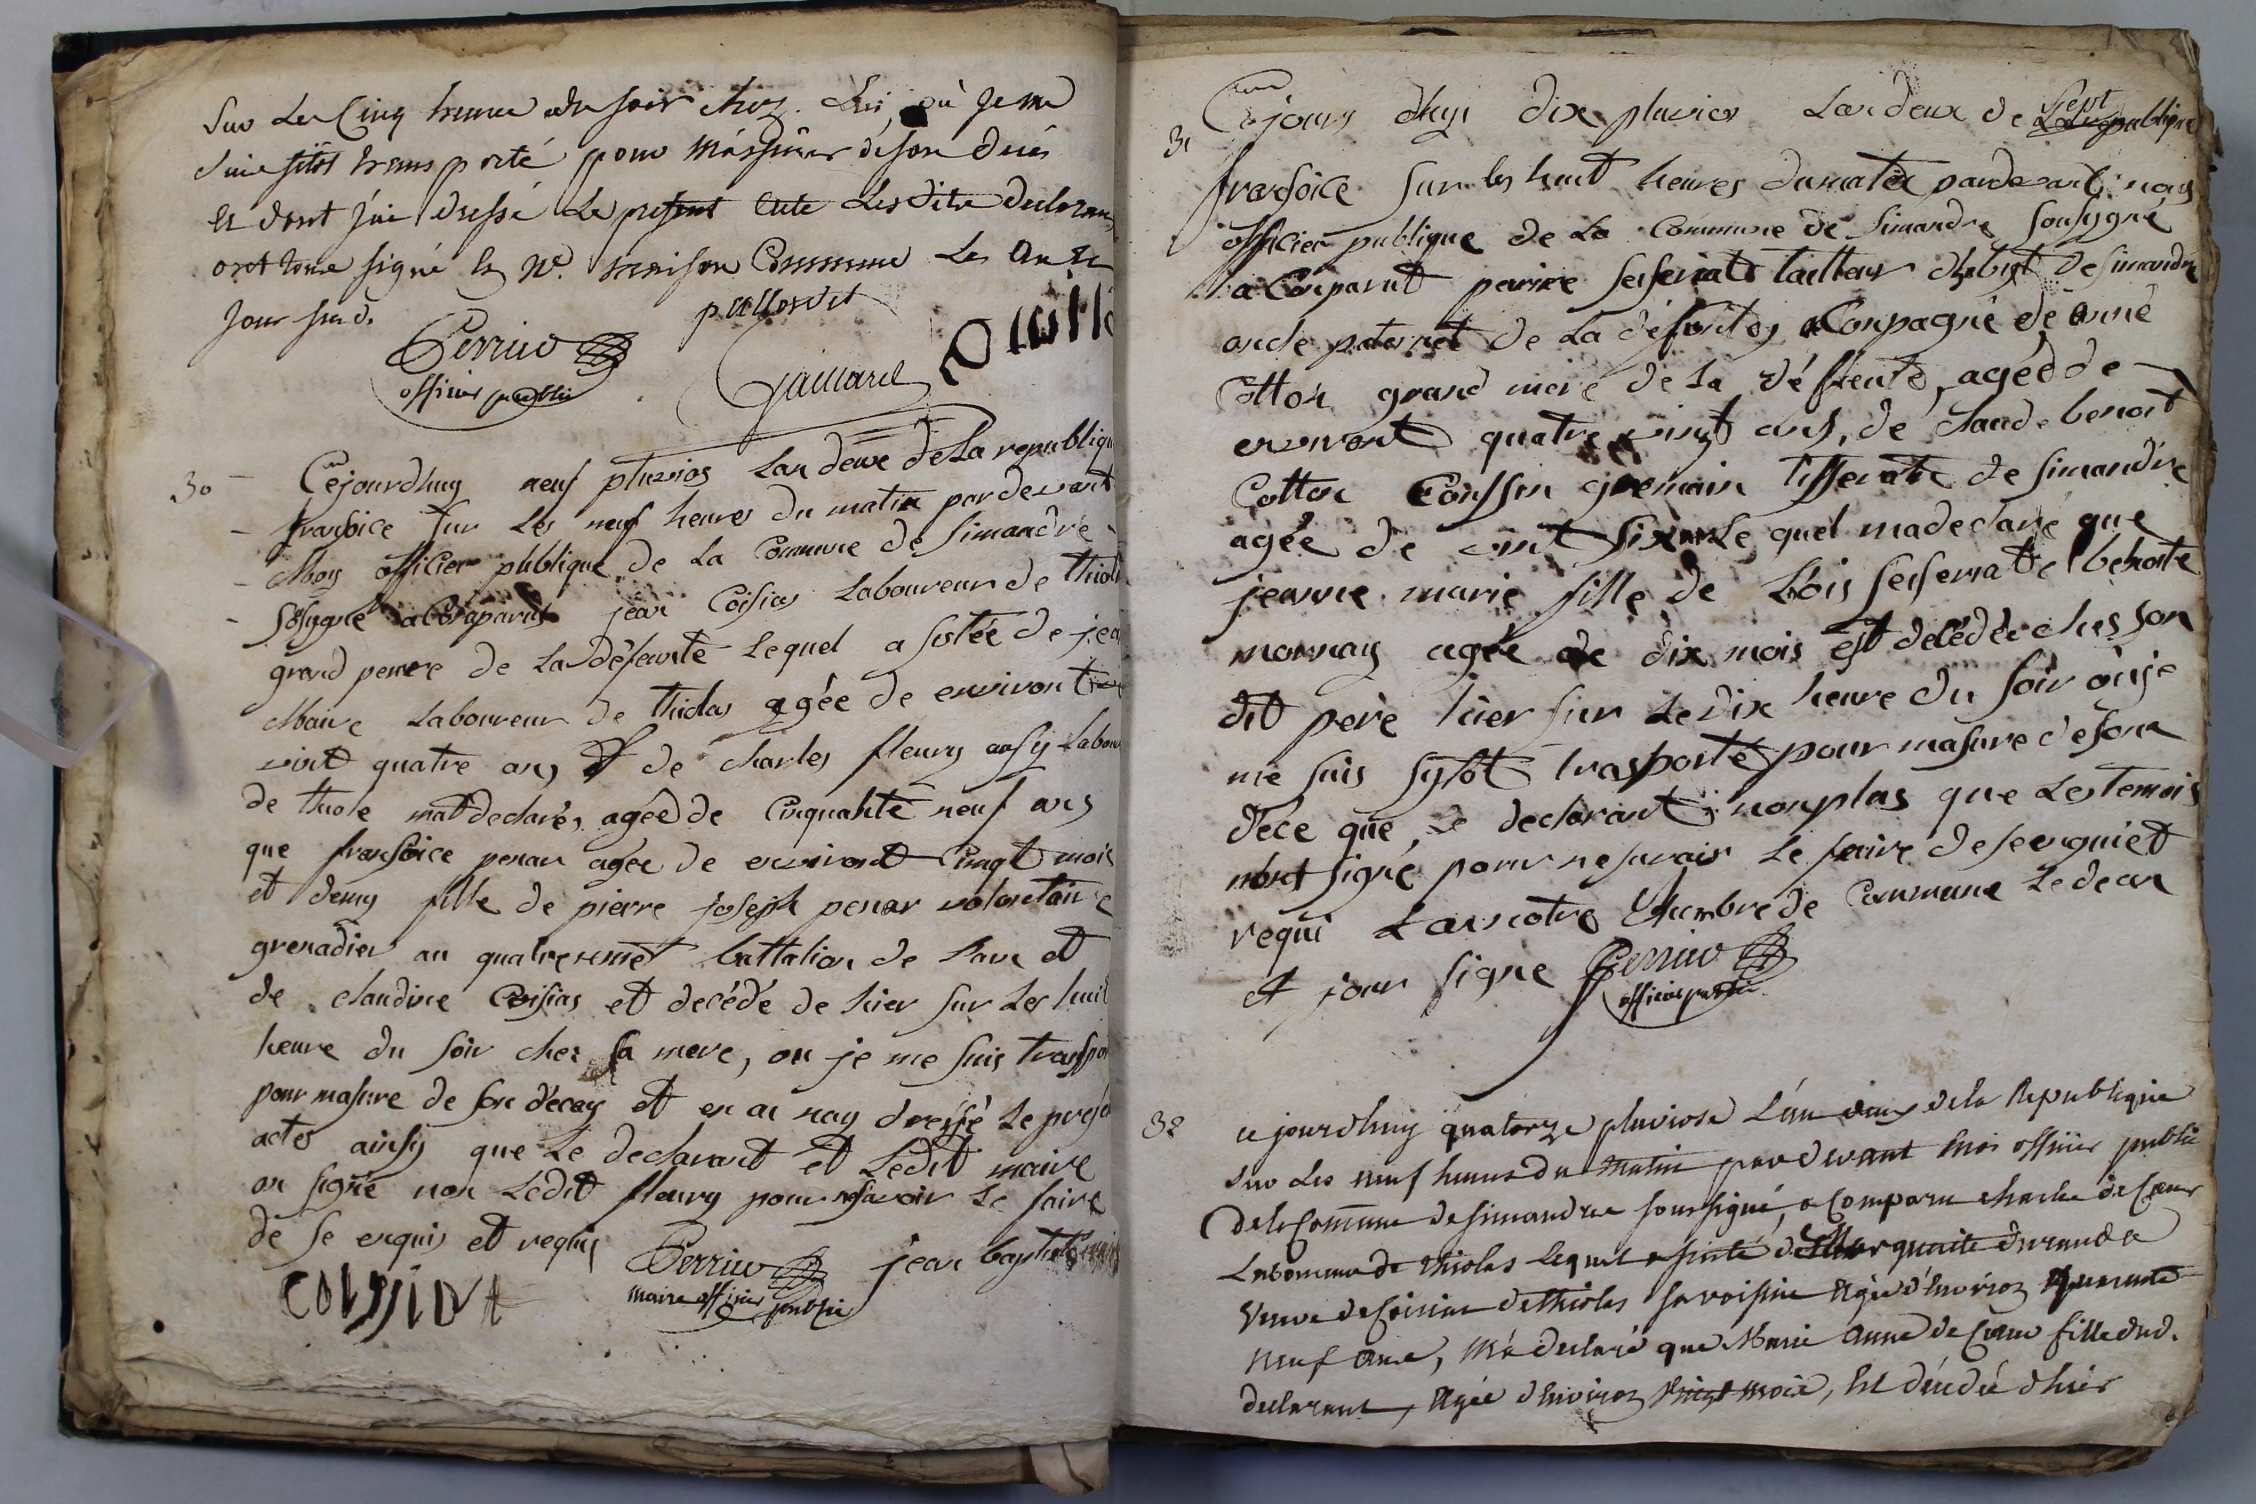 Sur Les Cinq heures du soir chez Lui, où je me
suis sitôt transporté pour m'assurer de son décès
et dont j'ai dressé le present acte Lesdits declarans
ont tous signé en Ne. maison Commune Les an et
jour sud.
Perrier
officier public
Gaillard
30
Cejourdhuy neuf pluvios Lan deux de La republique
fransoice sur Les neuf heures du matin pardevant
Moy officier publique de La Commune de Simandre
Sousygné a Comparut jean Coisias Laboureur de
grand perere de La défeunte Lequel a sistée de
Maire Laboureur de thiolas agée de environt
vint quatre ans de charles fleury ausy
de thiole mat declarés agée de Cinquante neuf ans
que fransoice penar agée de environt Cingt mois
et demy fille de pierre joseph penar volontaire
grenadier au quatreiemet battalion de Lain et
de claudine Coisias et decédé de hier sur Les huit
heure du soir ches sa mere, ou je me suis
pour masure de son déces et en ai dressé Le
actes ainsy que Le declarant et Ledit maire
on signé non Ledit fleury pour ne savoir Le faire
de se enquis et requis
Perrier jean baptiste
maire officier public
Coissiat
31
Cejours dhuy dix pluvios Lan deux de Sept La republique
fransoice sur les huit heures du matin pardevant nous
officier publique de La Commune de Simandre sousygné
a Comparut pairre tailleur dhabist de Simandre
oncle paternet de La defuntes a Conpagné de anne
Cotton grand mere de La défeunte, agée de
environt quatre vint ans, de Claude benoit
Cotton Coussin germain tisserant de Simandre
agée de vint Six ans Le quel ma declare que
jeanne marie fille de Lois benoite
mornay agée de dix mois est decédée ches son
dit pere hier sur Le dix heure du soir où je
me suis sytot trasporté pour masure de son
déce que Le declarant nonplus que Les temois
nont signé pour ne savair Le faire de se enquiet
requi Lan notre Chambre de Commune Le de an
et jour signe Perrier
officier public
32
ce jourdhuy quatorze pluviose L'an deux de la Republique
sur Les neuf heures du matin pardevant moi officier public
de la Commune de Simandre soussigné, a Comparu charles de Coeur
Laboureur de thiolas Lequel assisté de Marguerite Durand
veuve de Coisiat de thiolas sa voisine agée d'environ quarante
neuf ans, m'a declaré que Marie anne de Coeur fille dud.
declarant, agée d'environ vingt mois, est décédée d'hier